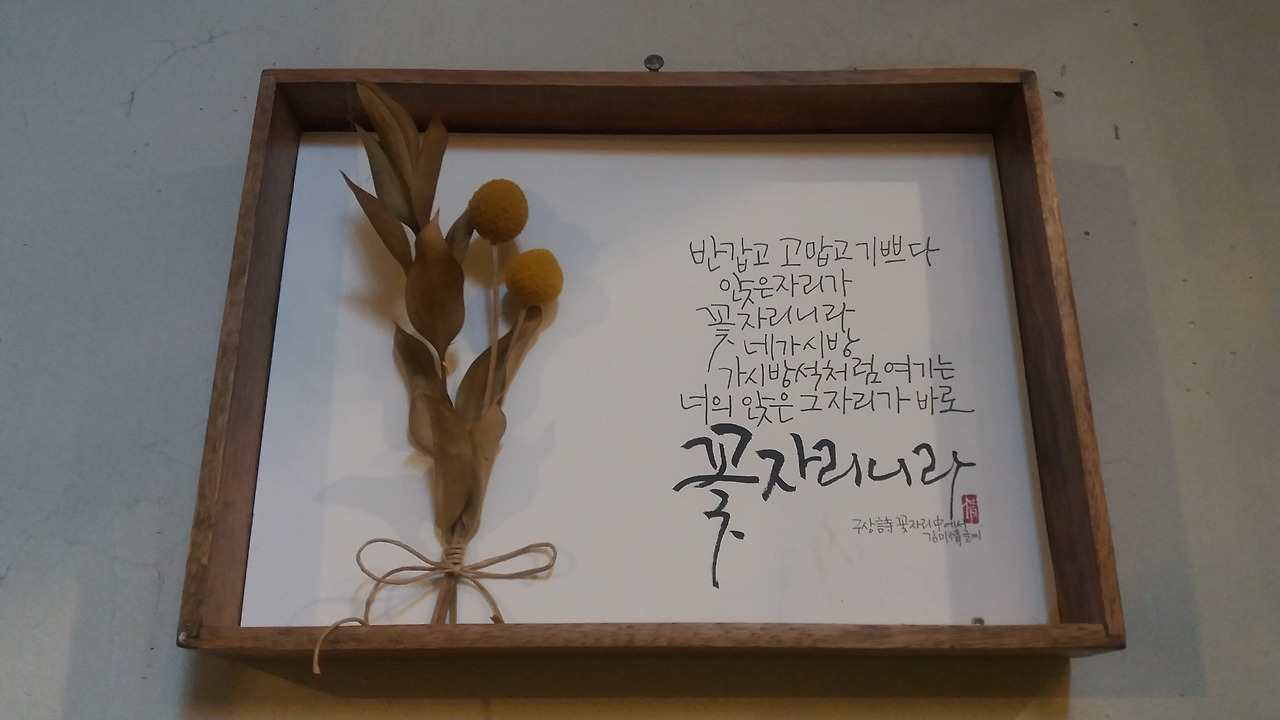 반갑고 고맙고 기쁘다
앉은 자리가
꽃자리니라
네가 시방
가시방석처럼 여기는
너의 앉은 그 자리가 바로
꽃자리니라
구상 詩 꽃자리 中에서